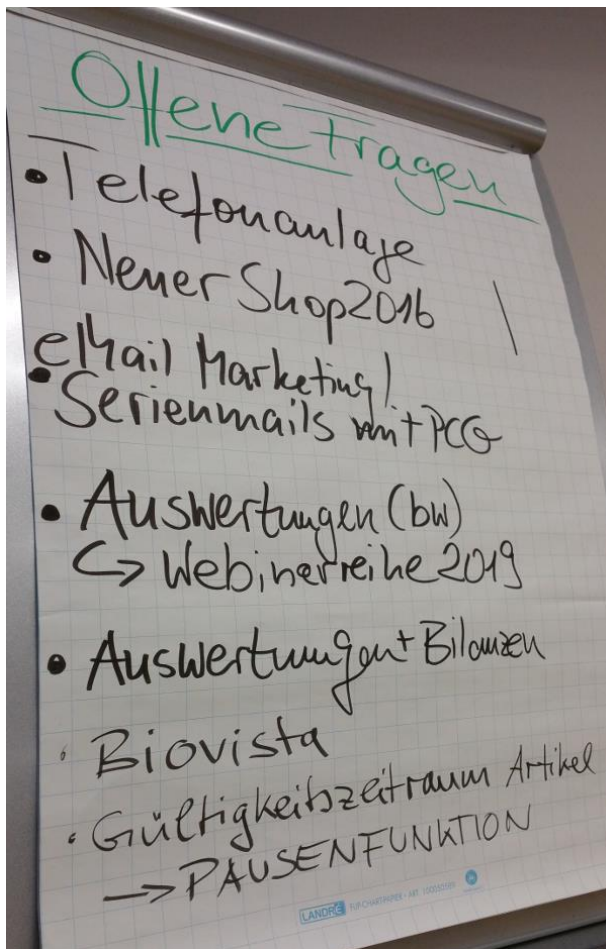 Offene Fragen
• Telefonanlage
• Neuer Shop 2016
eMail Marketing/
• Serienmails mit PCG
• Auswertungen (bw)
↪ Webinerreihe 2019
• Auswertungen + Bilanzen
• Biovista
• Gültigkeitszeitraum Artikel
→ PAUSENFUNKTION
LANDRÉ FLIPCHARTPAPIER • ART.